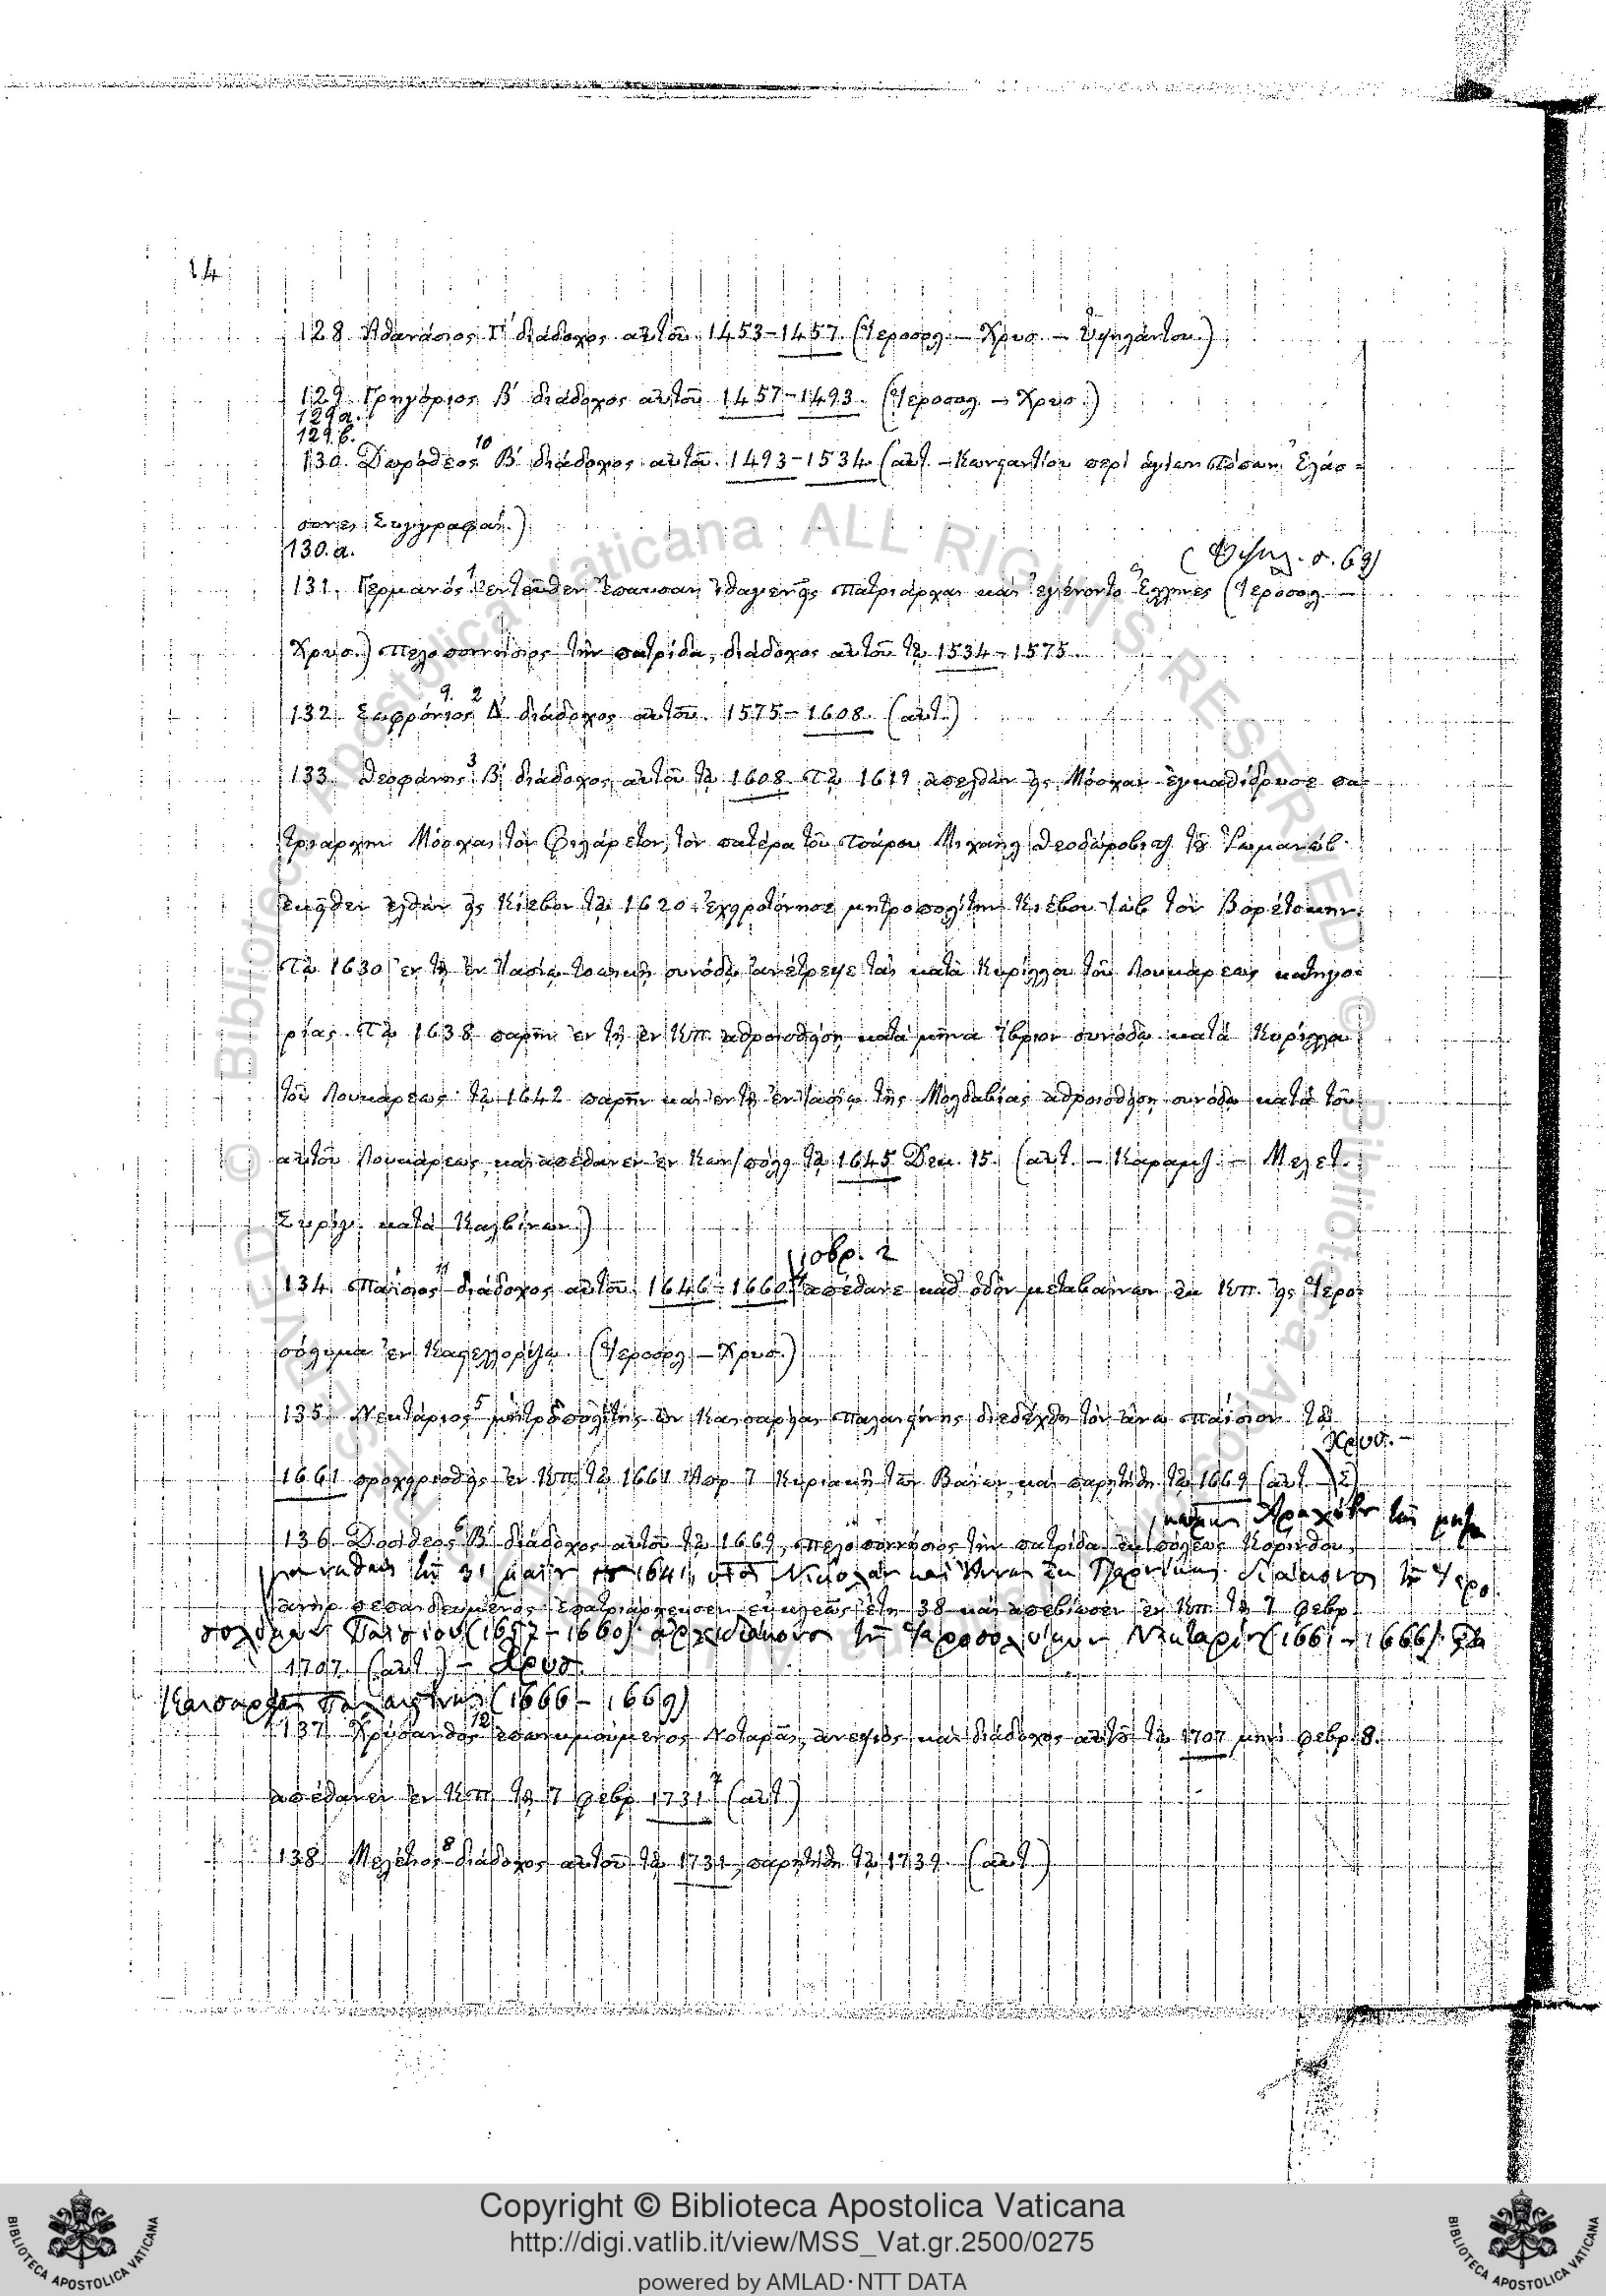 14
128. Ἀθανάσιος Γ΄ διάδοχος αὐτοῦ, 1453-1457. (Ἱεροσολ. – Χρυσ. – Ὑψηλάντου.)
129. Γρηγόριος Β΄ διάδοχος αὐτοῦ 1457-1493. (Ἱεροσολ. – Χρυσ.)
129a.
129b.
130. Δωρόθεος 10 Β΄ διάδοχος αὐτοῦ. 1493-1534 (αὐτ. – Κωνσταντίου περὶ Ἐλάσ-
σονες Συγγραφαί.)
130.a.
( Ὑψηλ. σ. 69)
131. Γερμανός 1 ἐντεῦθεν ἔπαυσαν ἰθαγενεῖς πατριάρχαι καὶ ἐγένοντο Ἕλληνες (Ἱεροσολ. –
Χρυσ.) Πελοποννήσιος τὴν πατρίδα, διάδοχος αὐτοῦ τῷ 1534-1575.
132. Σωφρόνιος 9. 2 Δ΄ διάδοχος αὐτοῦ. 1575-1608. (αὐτ.)
133. Θεοφάνης 3 Β΄ διάδοχος αὐτοῦ τῷ 1608. Τῷ 1619 ἀπελθὼν εἰς Μόσχαν ἐγκαθίδρυσε πα-
τριάρχην Μόσχας τὸν Φιλάρετον, τὸν πατέρα τοῦ τσάρου Μιχαὴλ Θεοδώροβιτζ τοῦ Ῥωμανώβ.
ἐκεῖθεν ἐλθὼν εἰς Κίεβον τῷ 1620 ἐχειροτόνησε μητροπολίτην Κιέβου Ἰὼβ τὸν Βορέτσκην.
Τῷ 1630 ἐν τῇ ἐν Ἰασίῳ τοπικῇ συνόδῳ ἀνέτρεψε τὰς κατὰ Κυρίλλου τοῦ Λουκάρεως κατηγο-
ρίας. Τῷ 1638 παρῆν ἐν τῇ ἐν Κπ. ἀθροισθείσῃ κατὰ μῆνα συνόδῳ κατὰ Κυρίλλου
τοῦ Λουκάρεως· τῷ 1642 παρῆν καὶ ἐν τῇ ἐν Ἰασίῳ τῆς Μολδαβίας ἀθροισθείσῃ συνόδῳ κατὰ τοῦ
αὐτοῦ Λουκάρεως, καὶ ἀπέθανεν ἐν Κων/πόλει τῷ 1645 Δεκ. 15. (αὐτ. – Καραμ. – Μελετ.
Συρίγ. κατὰ Καλβίνων.)
134. Παΐσιος 11 διάδοχος αὐτοῦ. 1646-1660. ἀπέθανε καθ᾽ ὁδὸν μεταβαίνων ἐκ Κπ. εἰς Ἱερο-
σόλυμα ἐν Καστελλορίζῳ. (Ἱεροσολ. – Χρυσ.)
135. Νεκτάριος 5 μητροπολίτης ὢν Καισαρείας Παλαιστίνης διεδέχθη τὸν ἄνω Παΐσιον τῷ
Χρυσ. –
1661 προχειρισθεὶς ἐν Κπ. τῷ 1661 Ἀπρ. 7 Κυριακῇ τῶν Βαΐων, καὶ παρῃτήθη τῷ 1669 (αὐτ. –
136. Δοσίθεος 6 Β΄ διάδοχος αὐτοῦ τῷ 1669, Πελοποννήσιος τὴν πατρίδα ἐκ πόλεως Κορίνθου,
31 1641,
ἀνὴρ πεπαιδευμένος ἐπατριάρχευσεν εὐκλεῶς ἔτη 38 καὶ ἀπεβίωσεν ἐν Κπ. τῷ 7 Φεβρ.
Παϊσίου (1657-1660). ἀρχιδιάκονος τῶν Ἱεροσολύμων Νεκταρίου (1661-1666).
1707. (αὐτ.) – Χρυσ.
Καισαρείας Παλαιστίνης (1666-1669)
137. Χρύσανθος 12 ἐπονομαζόμενος Νοταρᾶς, ἀνεψιὸς καὶ διάδοχος αὐτοῦ τῷ 1707 μηνὶ Φεβρ. 8.
ἀπέθανεν ἐν Κπ. τῷ 7 Φεβρ. 1731 7 (αὐτ.)
138. Μελέτιος 8 διάδοχος αὐτοῦ τῷ 1731, παρῃτήθη τῷ 1739. (αὐτ.)
Copyright © Biblioteca Apostolica Vaticana
http://digi.vatlib.it/view/MSS_Vat.gr.2500/0275
powered by AMLAD·NTT DATA